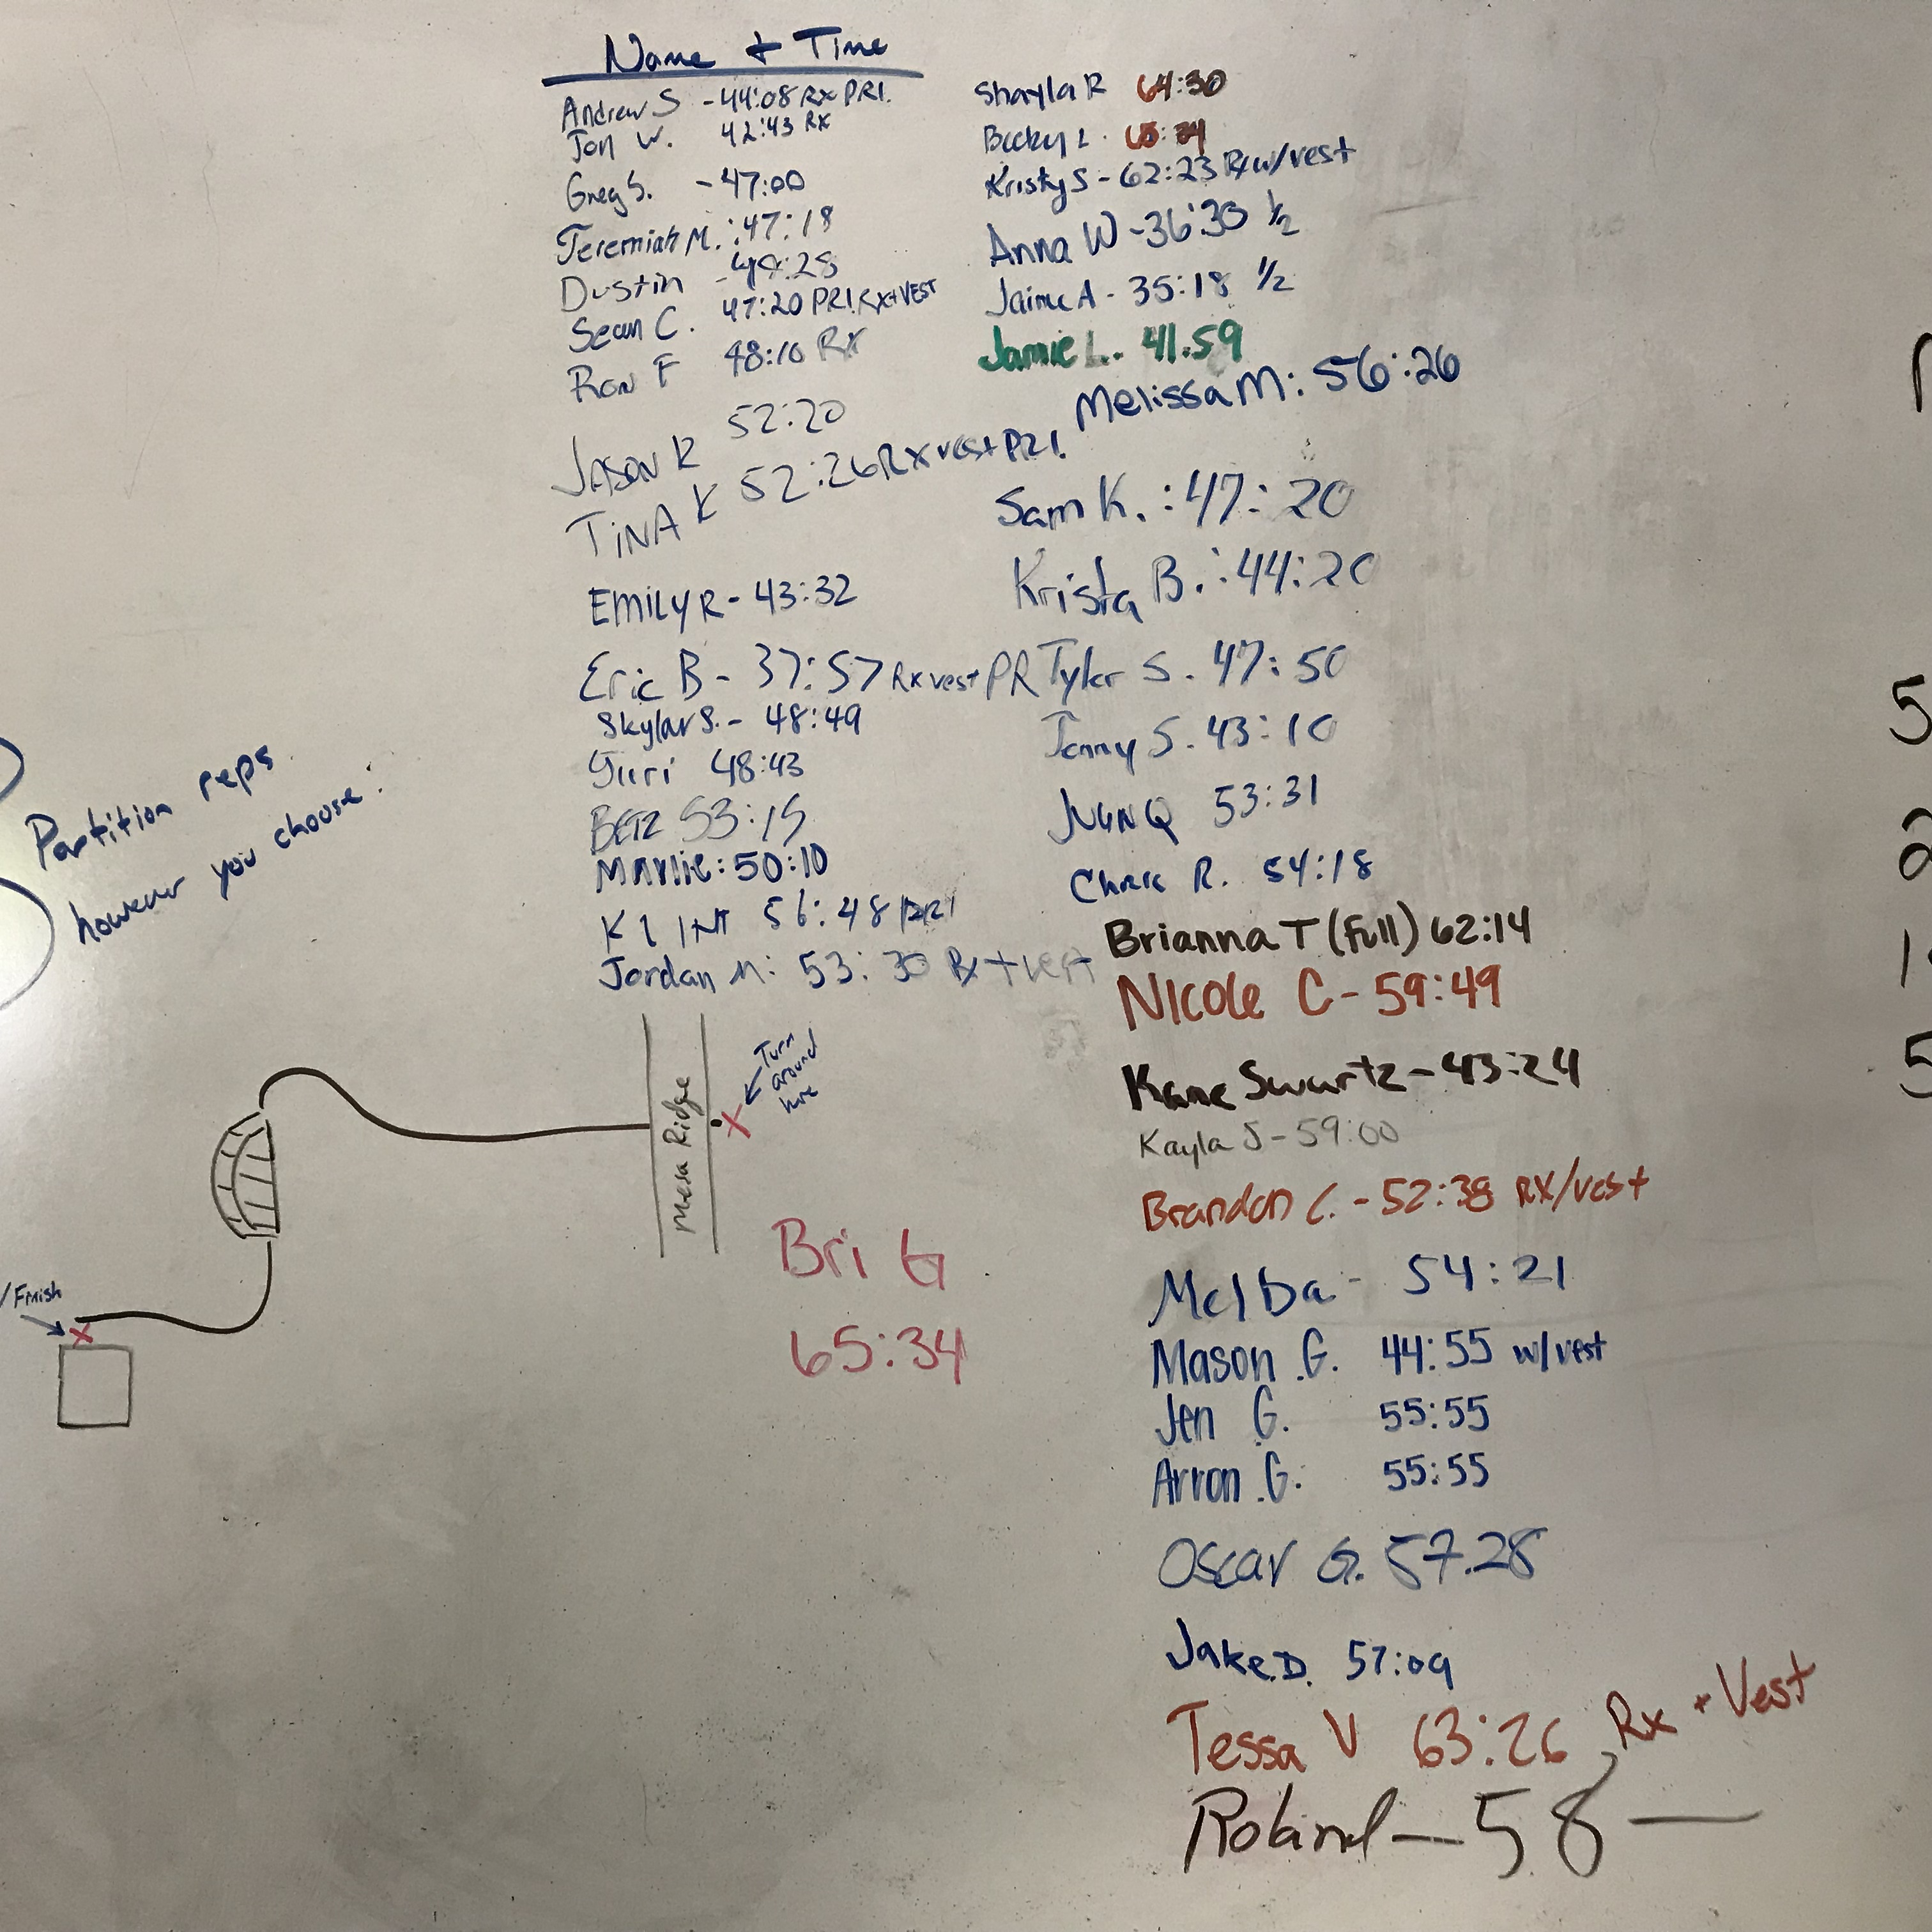 Name + Time
Andrew S - 44:08 RX PR!
Jon W. 42:43 RX
Greg S. - 47:00
Jeremiah M. : 47:18
Dustin
Sean C. 47:20 PR! RX+VEST
Ron F 48:10 RX
JASON R 52:20
TiNA K 52:26 RX vest PR!
EMILY R - 43:32
Eric B - 37:57 Rx vest PR
Skylar S. - 48:49
Yuri 48:43
BETZ 53:15
MArlie: 50:10
56:48 PR!
Jordan M: 53:30 Rx + vest
Shayla R 64:30
Becky L.
Kristy S - 62:23 Rx w/vest
Anna W - 36:30 1/2
Jaime A - 35:18 1/2
Jamie L. 41.59
Melissa M: 56:26
Sam K. : 47:20
Krista B. : 44:20
Tyler S. 47:50
Jenny S. 43:10
JUAN Q 53:31
R. 54:18
Brianna T (Full) 62:14
NICOLE C - 59:49
Kane Swartz - 43:24
Kayla J - 59:00
Brandon C. - 52:38 RX/vest
Melba - 54:21
Mason G. 44:55 w/vest
Jen G. 55:55
Arron G. 55:55
Oscar G. 57.28
Jake D. 57:09
Tessa V 63:26 Rx + Vest
Roland - 58 —
Partition reps
however you choose!
Turn
around
here
Mesa Ridge
/Finish
Bri G
65:34
5
2
1
5